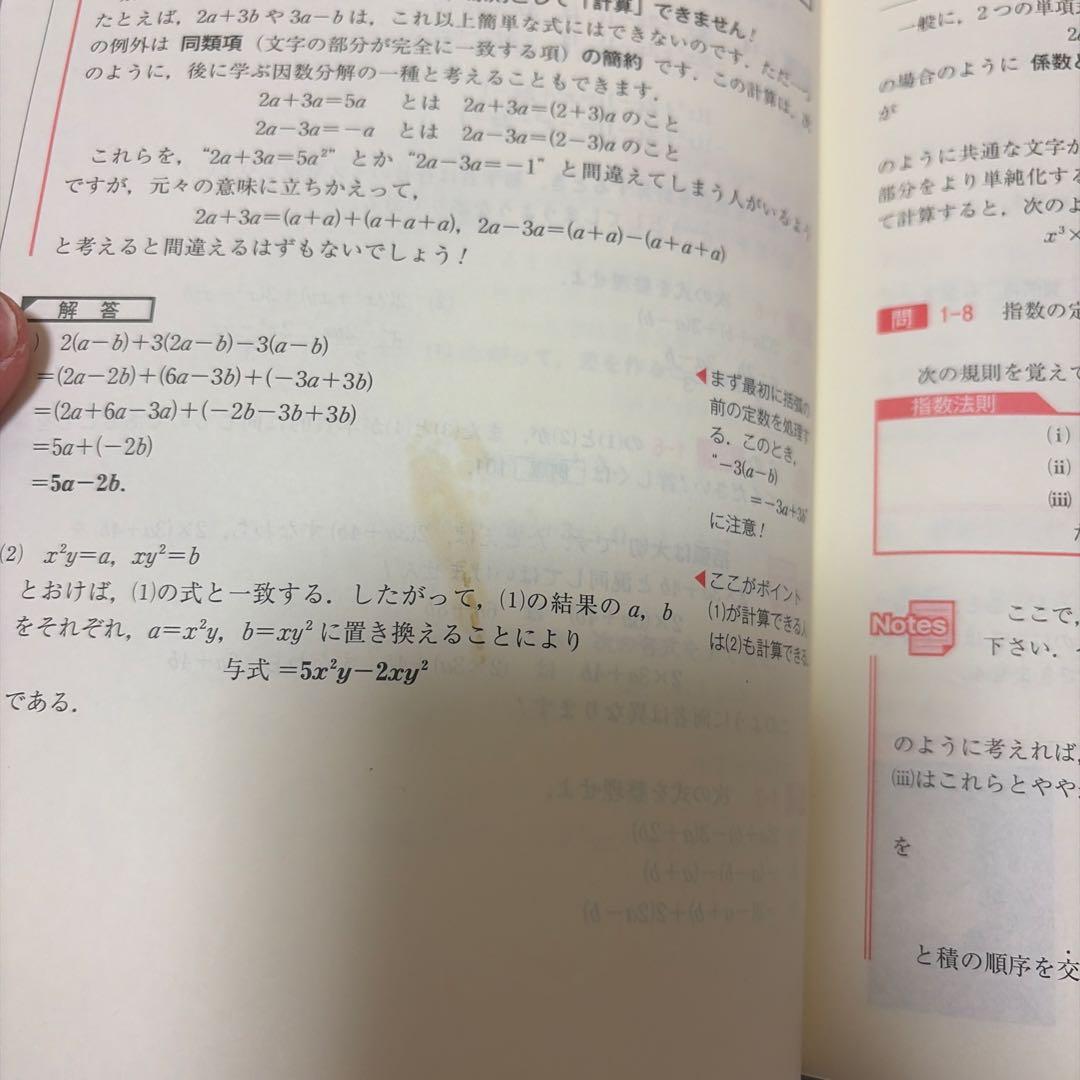 として「計算」できません！
たとえば，2a+3b や 3a−b は，これ以上簡単な式にはできないのです．ただ一つ
の例外は 同類項（文字の部分が完全に一致する項）の簡約 です．この計算は，次
のように，後に学ぶ因数分解の一種と考えることもできます．
2a+3a=5a とは 2a+3a=(2+3)a のこと
2a−3a=−a とは 2a−3a=(2−3)a のこと
これらを，“2a+3a=5a²” とか “2a−3a=−1” と間違えてしまう人がいるよう
ですが，元々の意味に立ちかえって，
2a+3a=(a+a)+(a+a+a)，2a−3a=(a+a)−(a+a+a)
と考えると間違えるはずもないでしょう！
解 答
) 2(a−b)+3(2a−b)−3(a−b)
=(2a−2b)+(6a−3b)+(−3a+3b)
=(2a+6a−3a)+(−2b−3b+3b)
=5a+(−2b)
=5a−2b.
◀まず最初に括弧の
前の定数を処理す
る．このとき，
“−3(a−b)
=−3a+3b”
に注意！
(2) x²y=a, xy²=b
とおけば，(1)の式と一致する．したがって，(1)の結果の a，b
をそれぞれ，a=x²y，b=xy² に置き換えることにより
与式 =5x²y−2xy²
である．
◀ここがポイント
(1)が計算できる人
は(2)も計算できる
一般に，2つの単項式
2a
の場合のように 係数と
が
のように共通な文字が
部分をより単純化する
て計算すると，次のよ
x³×
問 1-8 指数の定
次の規則を覚えて
指数法則
(i)
(ii)
(iii)
Notes ここで，
下さい．
のように考えれば，
(iii)はこれらとやや
を
と積の順序を交